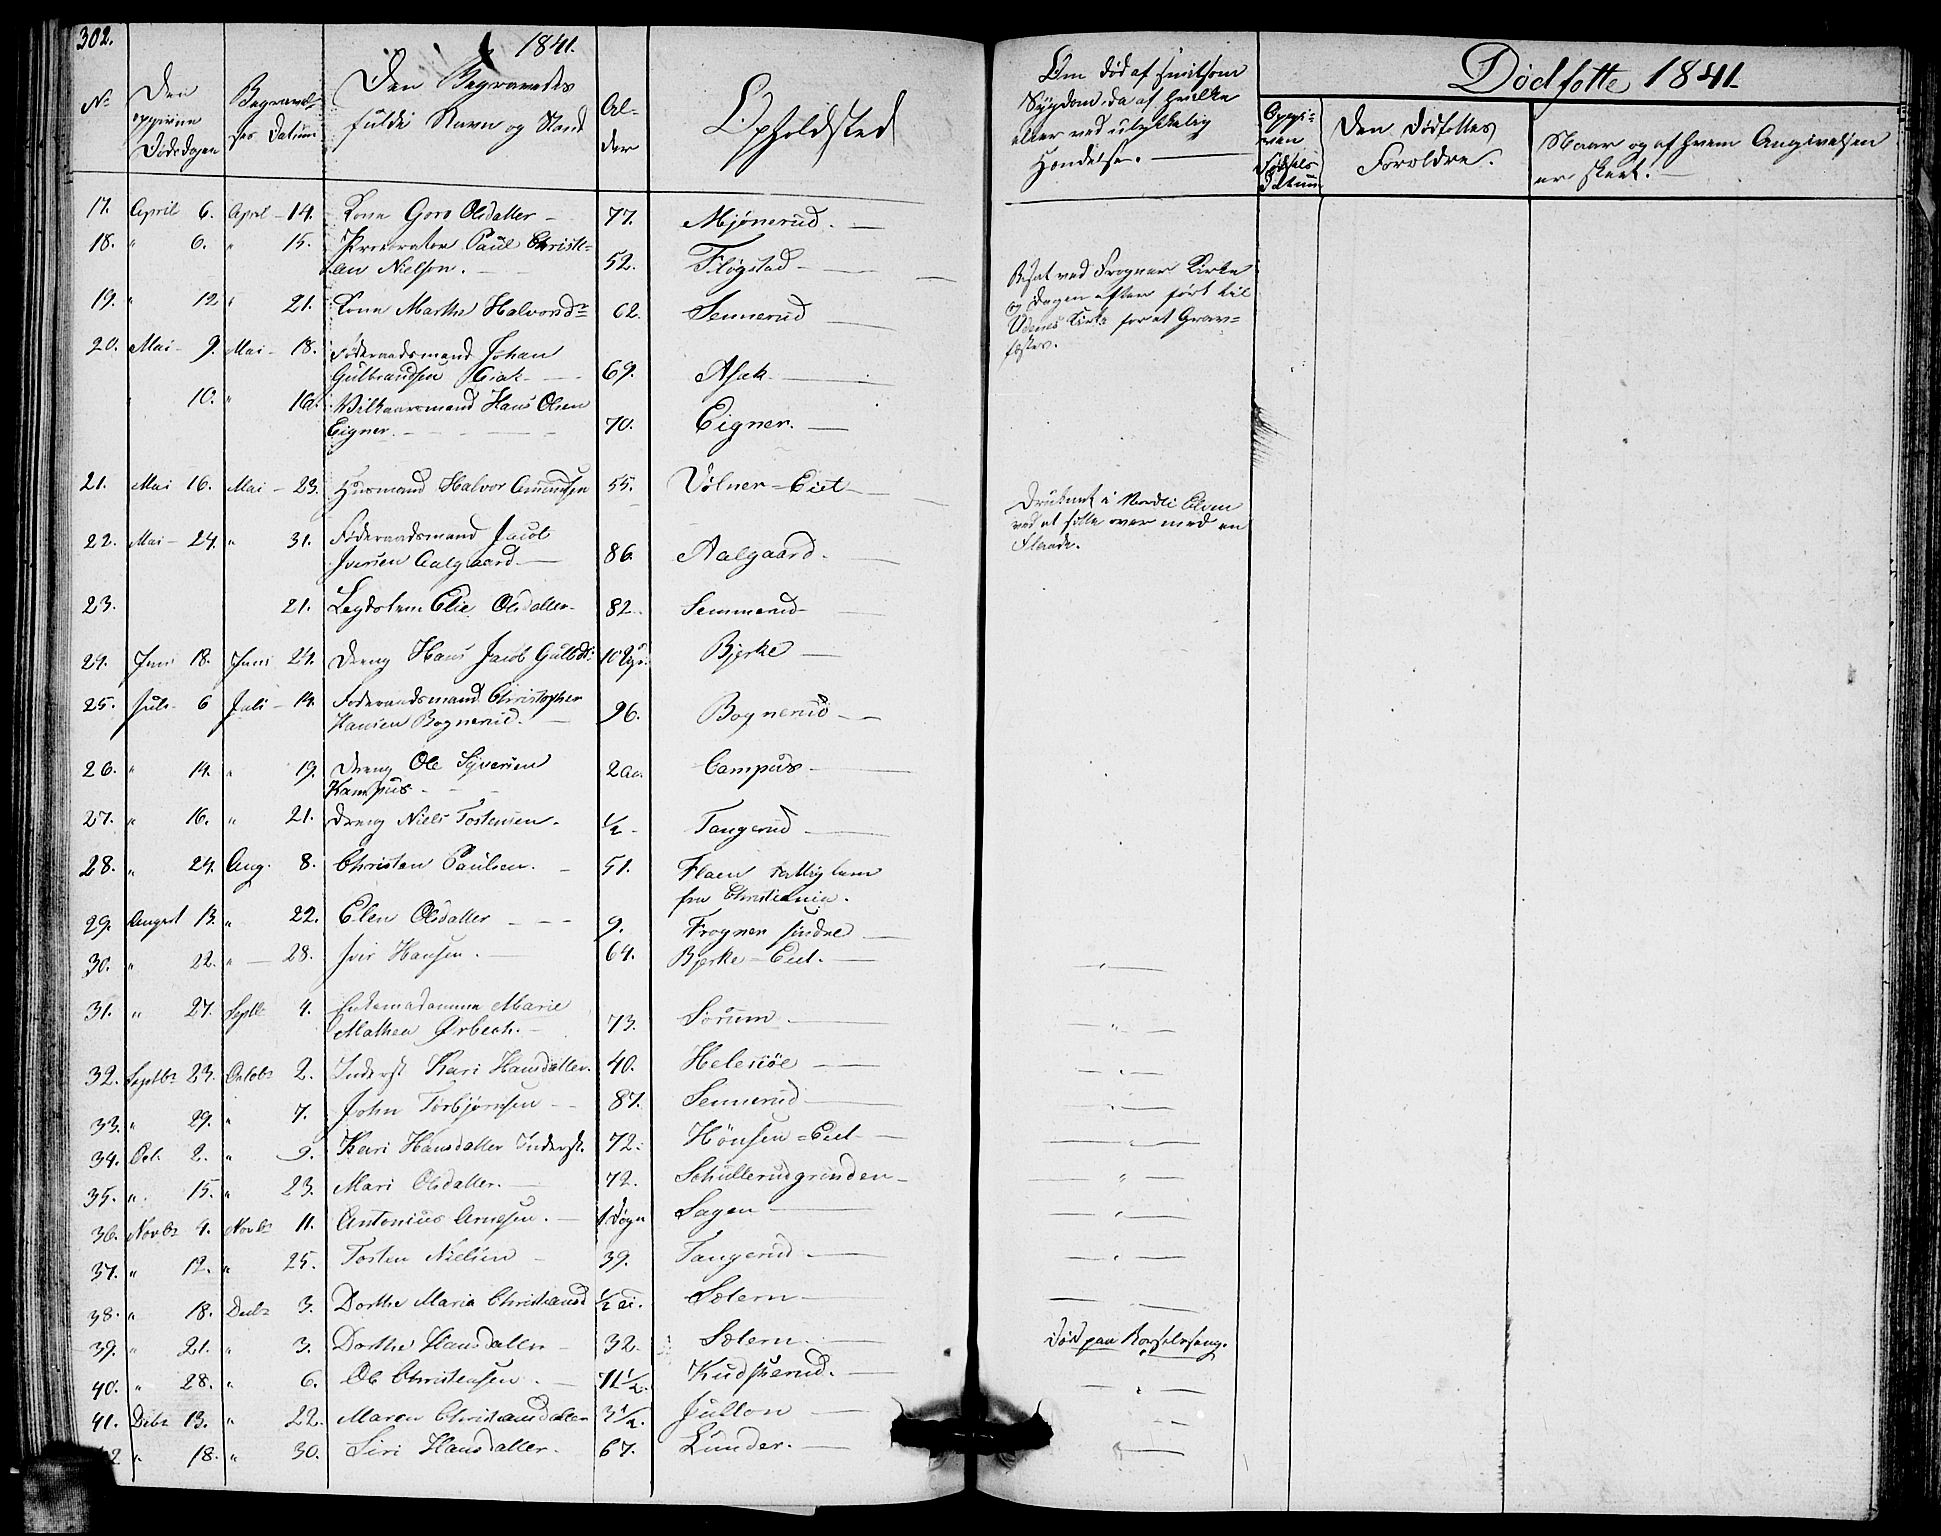 302.
1841.
No
Den opgivne Dødsdagen
Begravelses Datum
Den Begravedes fulde Navn og Stand
Alder
Opholdsted
Om død af smitsom
Sygdom, da af hvilken
eller ved ulykkelig
Hændelse.
Dødfødte 1841.
Opgiven Fødsels Datum
Den Dødfødtes Forældre.
Naar og af hvem Angivelsen
er skeet.
17. April 6. April 14. Kone Goro Olsdatter 77. Mjønerud.
18. " 6. " 15. Procurator Paul Christi-
an Nielsen. 52. Fløgstad
Bisat ved Frogner Kirke
og Dagen efter ført til
Udenes Kirke for at Grav-
fæstes.
19. " 12 " 21. Kone Marthe Halvorsdr 62. Sennerud
20. Mai 9. Mai 18. Føderaadsmand Johan
Gulbrandsen Asak 69. Asak
10. " 16. Vilkaarsmand Hans Olsen
Eigner. 70. Eigner.
21. Mai 16. Mai 23. Husmand Halvor Amundsen 55. Vølner-Eiet
Druknet i Nordli Elven
ved at falde over med en
Flaade.
22. Mai 24. " 31. Føderaadsmand Jacob
Iversen Aalgaard 86. Aalgaard.
23. 21. Legdslem Elie Olsdatter 82. Sennerud
24. Juni 18. Juni 24. Dreng Hans Jacob Gulbds. 10 Uger. Bjerke
25. Juli 6 Juli 14. Føderaadsmand Christopher
Hansen Bognerud. 96. Bognerud
26. " 14. " 19. Dreng Ole Syversen
Kampus 2 Aar. Campus
27. " 16. " 21. Dreng Niels Tostensen. 1/2 Tangerud
28. " 24. Aug. 8. Christen Paulsen. 51. Flaen Fattiglem
fra Christiania.
29. August 13. " 22. Elen Olsdatter 9. Frogner søndre
30. " 22. " 28. Iver Hansen. 64. Bjerke-Eiet.
31. " 27. Septb 4. Enkemadamme Marie
Mathea Ørbech. 73. Sørum
32. Septbr 23. Octobr 2. Inderst Kari Hansdatter. 40. Helesiøe
33. " 29. " 7. John Torbjørnsen 87. Sennerud
34. Oct. 2. " 9. Kari Hansdatter Inderst. 72. Hønsen-Eiet
35. " 15. " 23. Mari Olsdatter. 72. Schullerudgrinden
36. Novbr 4. Novbr 11. Antonius Arnesen. 1 Døgn Sagen
37. " 12. " 25. Tosten Nielsen 39. Tangerud
38. " 18. Decbr 3. Dorthe Maria Christiansd 1/2 Sætern
39. " 21. " 3. Dorthe Hansdatter 32. Sætern. Død paa Barselseng.
40. " 28. " 6. Ole Christensen. 71 1/2. Kudskerud.
41. Decbr 13. " 22. Maren Christiansdatter 3 1/2. Julton
42 " 18. " 30. Siri Hansdatter. 67. Lunder.